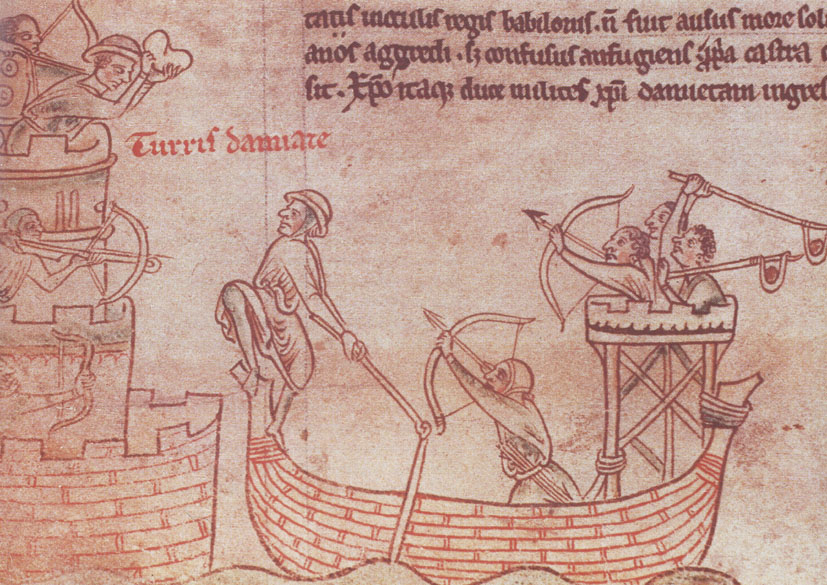 tatis incolis regis babilonis. n̄ fuit ausus more soli
anos aggredi. sꝫ confusus aufugiens ꝓpa castra
sit. Xp̄o itaqꝫ duce milites xp̄i damietam ingres
Turris damiate